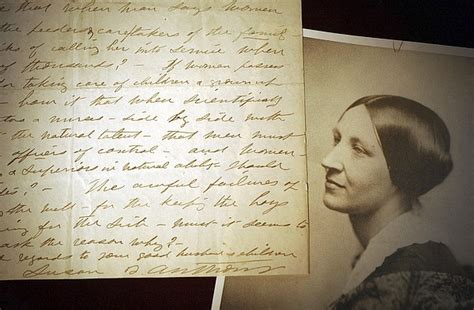 that when man says women
the feeders & caretakers of the family
of calling her into service when
of thousands? - If woman possess
taking care of children & grown up
it that when scientifically
as a nurse - side by side with
the natural talent - that men must
officers of control - and women
superiors in natural ability should
? - The awful failures of
the well - for the keeping the boys
for the sick - must it seems to
ask the reason why? -
regards to your good husband & children
Susan B Anthony